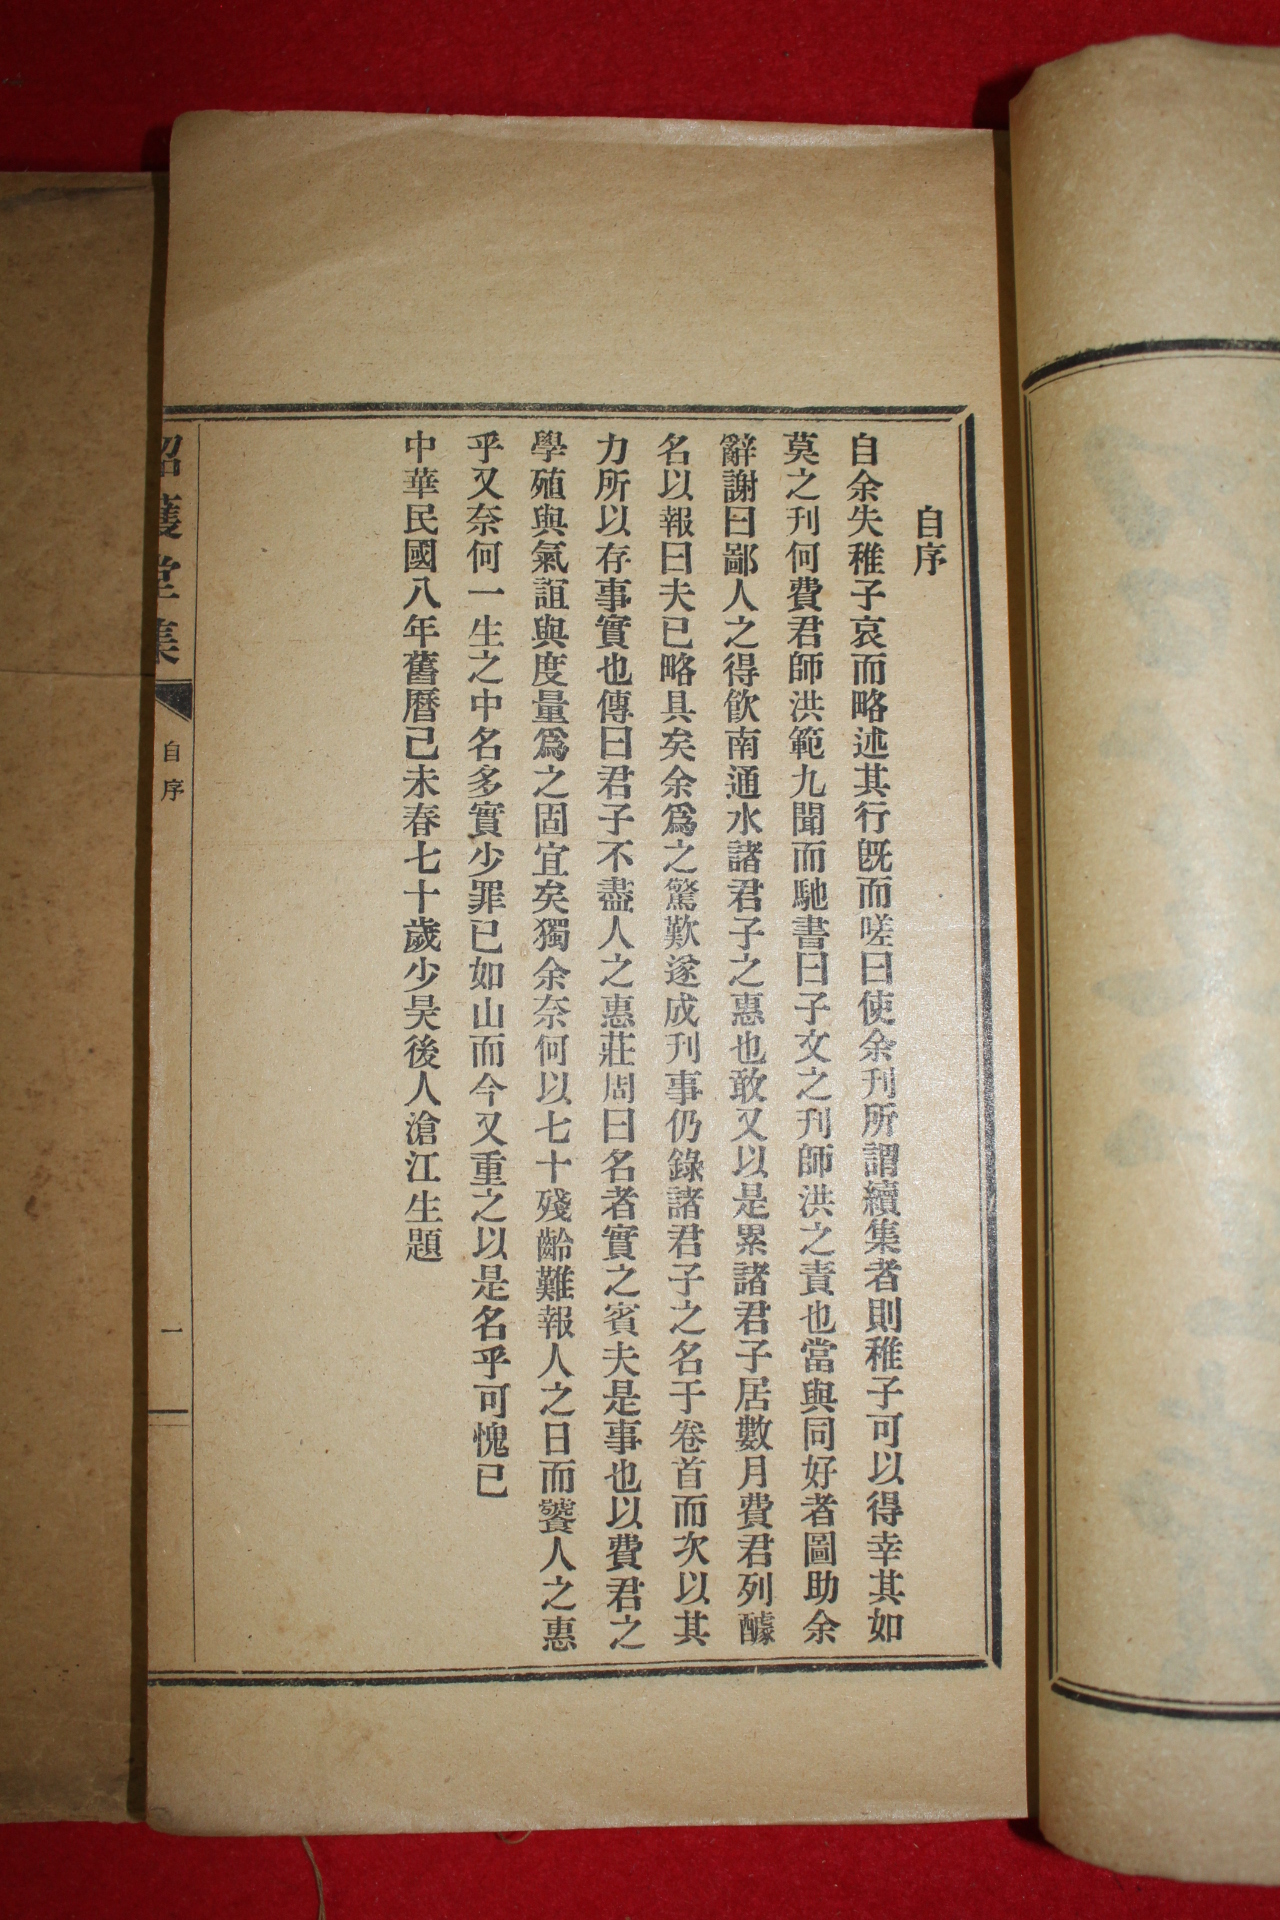 自序
自余失稚子哀而略述其行旣而嗟曰使余刊所謂續集者則稚子可以得幸其如
莫之刊何費君師洪範九聞而馳書曰子文之刊師洪之責也當與同好者圖助余
辭謝曰鄙人之得飮南通水諸君子之惠也敢又以是累諸君子居數月費君列醵
名以報曰夫已略具矣余爲之驚歎遂成刊事仍錄諸君子之名于卷首而次以其
力所以存事實也傳曰君子不盡人之惠莊周曰名者實之賓夫是事也以費君之
學殖與氣誼與度量爲之固宜矣獨余奈何以七十殘齡難報人之日而饕人之惠
乎又奈何一生之中名多實少罪已如山而今又重之以是名乎可愧已
中華民國八年舊曆己未春七十歲少昊後人滄江生題
韶濩堂集
自序
一